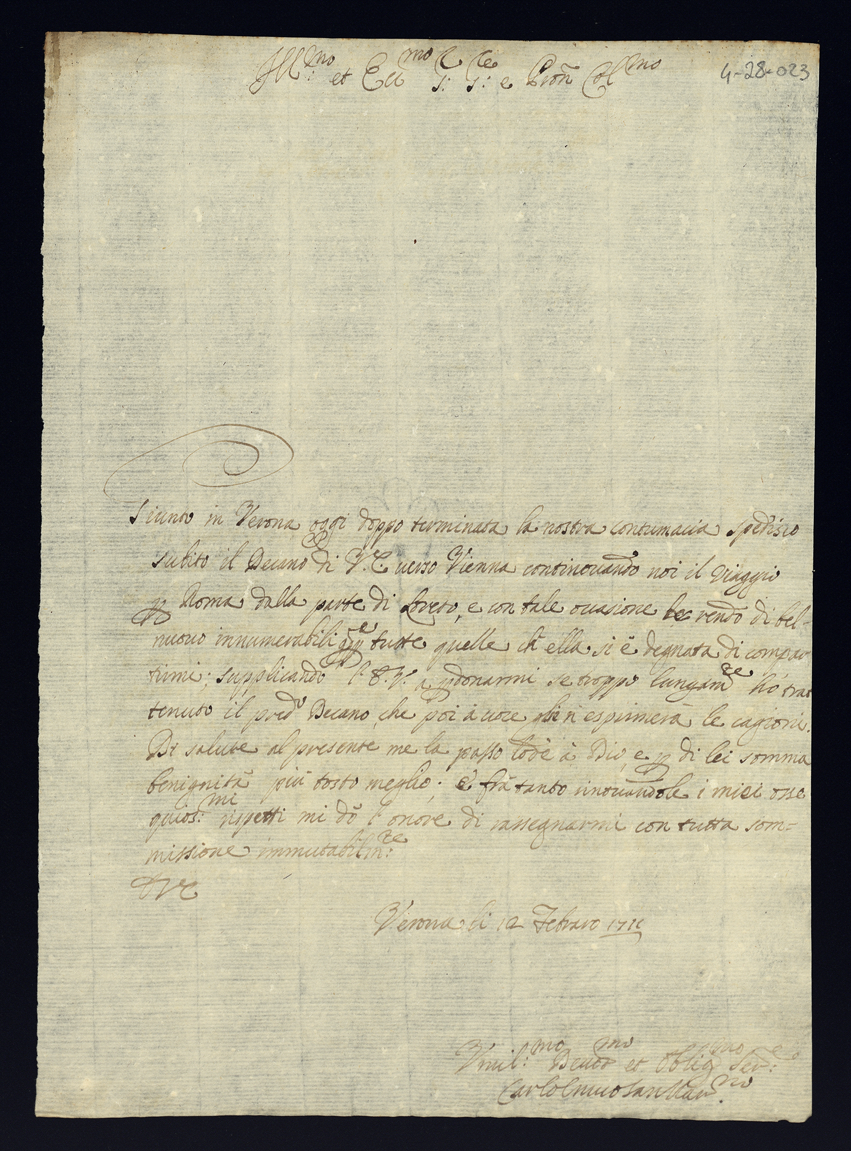 Ill:mo et Ecc:mo S: S:re e Pron Col:mo
4-28-023
Giunto in Verona oggi doppo terminata la nostra contumacia spedisco
subito il Decano di V.E. verso Vienna continovando noi il viaggio
p Roma dalla parte di Loreto, e con tale occasione le rendo di bel-
nuovo innumerabili gre p tutte quelle ch' ella si è degnata di compar
tirmi; supplicando l'E.V. a pdonarmi se troppo lungamte hò trat
tenuto il predo Decano, che poi à voce esprimerà le cagioni.
Di salute al presente me la passo lode à Dio, e p di lei somma
benignità più tosto meglio; e frà tanto rinovandole i miei osse
quios:mi rispetti mi dò l'onore di rassegnarmi con tutta som=
missione immutabilm:te
D V E
Verona li 12 Febraro 171
Umil:mo Devot:mo et Oblig:mo Ser:
Carlo